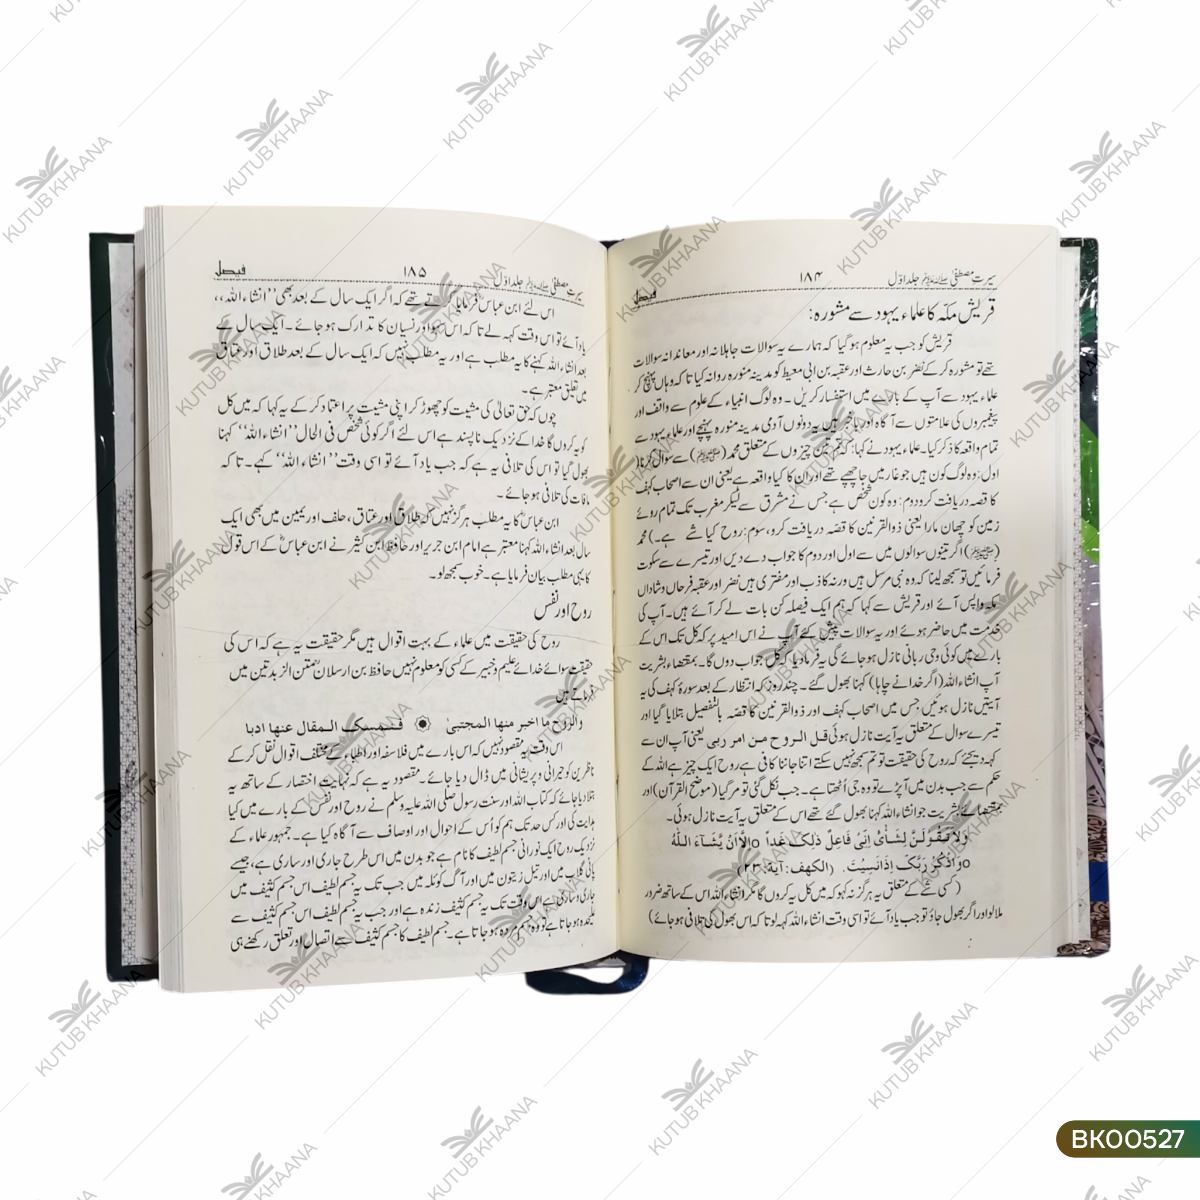 سیرت مصطفیٰ صلی اللہ علیہ وسلم جلد اوّل ۱۸۴ فیصل
قریش مکہ کا علماء یہود سے مشورہ:
قریش کو جب یہ معلوم ہو گیا کہ ہمارے یہ سوالات جاہلانہ اور معاندانہ سوالات
تھے تو مشورہ کر کے نضر بن حارث اور عقبہ بن ابی معیط کو مدینہ منورہ روانہ کیا تا کہ وہاں پہنچ کر
علماء یہود سے آپ کے بارے میں استفسار کریں۔ وہ لوگ انبیاء کے علوم سے واقف اور
پیغمبروں کی علامتوں سے آگاہ اور باخبر ہیں یہ دونوں آدمی مدینہ منورہ پہنچے اور علماء یہود سے
تمام واقعہ کا ذکر کیا۔ علماء یہود نے کہا: کہ تم تین چیزوں کے متعلق محمد (ﷺ) سے سوال کرنا (
اول: وہ لوگ کون ہیں جو غار میں جا چھپے تھے اور ان کا کیا واقعہ ہے یعنی ان سے اصحاب کہف
کا قصہ دریافت کرو دوم: وہ کون شخص ہے جس نے مشرق سے لیکر مغرب تک تمام روئے
زمین کو چھان مارا یعنی ذوالقرنین کا قصہ دریافت کرو، سوم: روح کیا شے ہے۔) محمد
(ﷺ) اگر تینوں سوالوں میں سے اول اور دوم کا جواب دے دیں اور تیسرے سے سکوت
فرمائیں تو سمجھ لینا کہ وہ نبی مرسل ہیں ورنہ کاذب اور مفتری ہیں نضر اور عقبہ فرحاں و شاداں
مکہ واپس آئے اور قریش سے کہا کہ ہم ایک فیصلہ کن بات لے کر آئے ہیں۔ آپ کی
خدمت میں حاضر ہوئے اور یہ سوالات پیش کئے آپ نے اس امید پر کہ کل تک اس کے
بارے میں کوئی وحی ربانی نازل ہو جائے گی یہ فرما دیا کہ کل جواب دوں گا۔ بمقتضاء بشریت
آپ انشاء اللہ (اگر خدا نے چاہا) کہنا بھول گئے۔ چند روز کہ انتظار کے بعد سورۂ کہف کی یہ
آیتیں نازل ہوئیں جس میں اصحاب کہف اور ذوالقرنین کا قصہ بالتفصیل بتلایا گیا اور
تیسرے سوال کے متعلق یہ آیت نازل ہوئی قل الروح من امر ربی یعنی آپ ان سے
کہہ دیجئے کہ روح کی حقیقت تو تم سمجھ نہیں سکتے اتنا جاننا کافی ہے روح ایک چیز ہے اللہ کے
حکم سے جب بدن میں آ پڑے تو وہ جی اُٹھتا ہے۔ جب نکل گئی تو مر گیا (موضح القرآن) اور
بمقتضائے بشریت جو انشاء اللہ کہنا بھول گئے تھے اس کے متعلق یہ آیت نازل ہوئی۔
وَلَا تَقُوْلَنَّ لِشَائْ اِنِّیْ فَاعِلٌ ذٰلِکَ غَداً o اِلَّا اَنْ یَّشَآءَ اللّٰہُ
o وَاذْکُرْ رَبَّکَ اِذَا نَسِیْتَ. (الکھف: آیة: ۲۳)
(کسی شئے کے متعلق یہ ہر گز نہ کہو کہ میں کل یہ کروں گا مگر انشاء اللہ اس کے ساتھ ضرور
ملا لو اور اگر بھول جاؤ تو جب یاد آئے تو اسی وقت انشاء اللہ کہہ لو تا کہ اس بھول کی تلافی ہو جائے)
سیرت مصطفیٰ صلی اللہ علیہ وسلم جلد اوّل ۱۸۵ فیصل
اس لئے ابن عباسؓ فرمایا کرتے تھے کہ اگر ایک سال کے بعد بھی ”انشاء اللہ“
یاد آئے تو اس وقت کہہ لے تا کہ اس سہو اور نسیان کا تدارک ہو جائے۔ ایک سال کے
بعد انشاء اللہ کہنے کا یہ مطلب ہے اور یہ مطلب نہیں کہ ایک سال کے بعد طلاق اور عتاق
میں تعلیق معتبر ہے۔
چوں کہ حق تعالیٰ کی مشیت کو چھوڑ کر اپنی مشیت پر اعتماد کر کے یہ کہا کہ میں کل
کو یہ کروں گا خدا کے نزدیک ناپسند ہے اس لئے اگر کوئی شخص فی الحال ”انشاء اللہ“ کہنا
بھول گیا تو اس کی تلافی یہ ہے کہ جب یاد آئے تو اسی وقت ”انشاء اللہ“ کہے۔ تا کہ
مافات کی تلافی ہو جائے۔
ابن عباسؓ کا یہ مطلب ہرگز نہیں کہ طلاق اور عتاق، حلف اور یمین میں بھی ایک
سال بعد انشاء اللہ کہنا معتبر ہے امام ابن جریر اور حافظ ابن کثیر نے ابن عباسؓ کے اس قول
کا یہی مطلب بیان فرمایا ہے۔ خوب سمجھ لو۔
روح اور نفس
روح کی حقیقت میں علماء کے بہت اقوال ہیں مگر حقیقت یہ ہے کہ اس کی
حقیقت سوائے خدائے علیم و خبیر کے کسی کو معلوم نہیں حافظ بن ارسلان متن الزبد تین میں
فرماتے ہیں
والروح ما اخبر منها المجتبیٰ فنمسک المقال عنها ادبا
اس وقت یہ مقصود نہیں کہ اس بارے میں فلاسفہ اور اطباء کے مختلف اقوال نقل کر کے
ناظرین کو حیرانی و پریشانی میں ڈال دیا جائے۔ مقصود یہ ہے کہ نہایت اختصار کے ساتھ یہ
بتلا دیا جائے کہ کتاب اللہ اور سنت رسول صلی اللہ علیہ وسلم نے روح اور نفس کے بارے میں کیا
ہدایت کی اور کس حد تک ہم کو اُس کے احوال اور اوصاف سے آگاہ کیا ہے۔ جمہور علماء کے
نزدیک روح ایک نورانی جسم لطیف کا نام ہے جو بدن میں اس طرح جاری اور ساری ہے، جیسے
پانی گلاب میں اور تیل زیتون میں اور آگ کوئلہ میں جب تک یہ جسم لطیف اس جسم کثیف میں
جاری و ساری ہے اس وقت تک یہ جسم کثیف زندہ ہے اور جب یہ جسم لطیف اس جسم کثیف سے
علیٰحدہ ہو جاتا ہے تو وہ جسم مردہ ہو جاتا ہے۔ جسم لطیف کا جسم کثیف سے اتصال اور تعلق رکھنے ہی
KUTUB KHAANA
BK00527